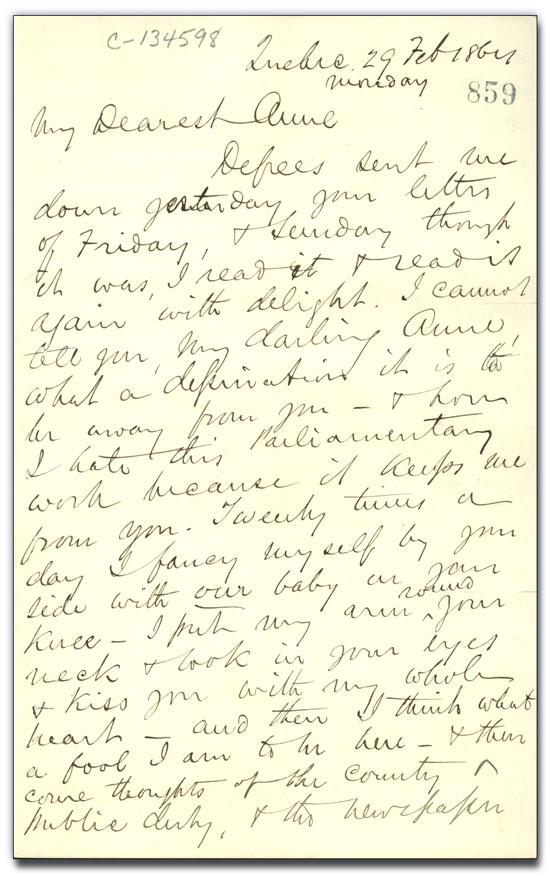 C-134598
Quebec. 29 Feb 1864
monday
859
My Dearest Anne
Defrees sent me
down yesterday your letter
of Friday, & Sunday though
it was, I read it & read it
again with delight. I cannot
tell you, my darling Anne,
what a deprivation it is to
be away from you – & how
I hate this Parliamentary
work because it keeps me
from you. Twenty times a
day I fancy myself by your
side with our baby on your
knee – I put my arm round your
neck & look in your eyes
& kiss you with my whole
heart – and then I think what
a fool I am to be here – & then
come thoughts of the County &
Public duty, & the newspaper